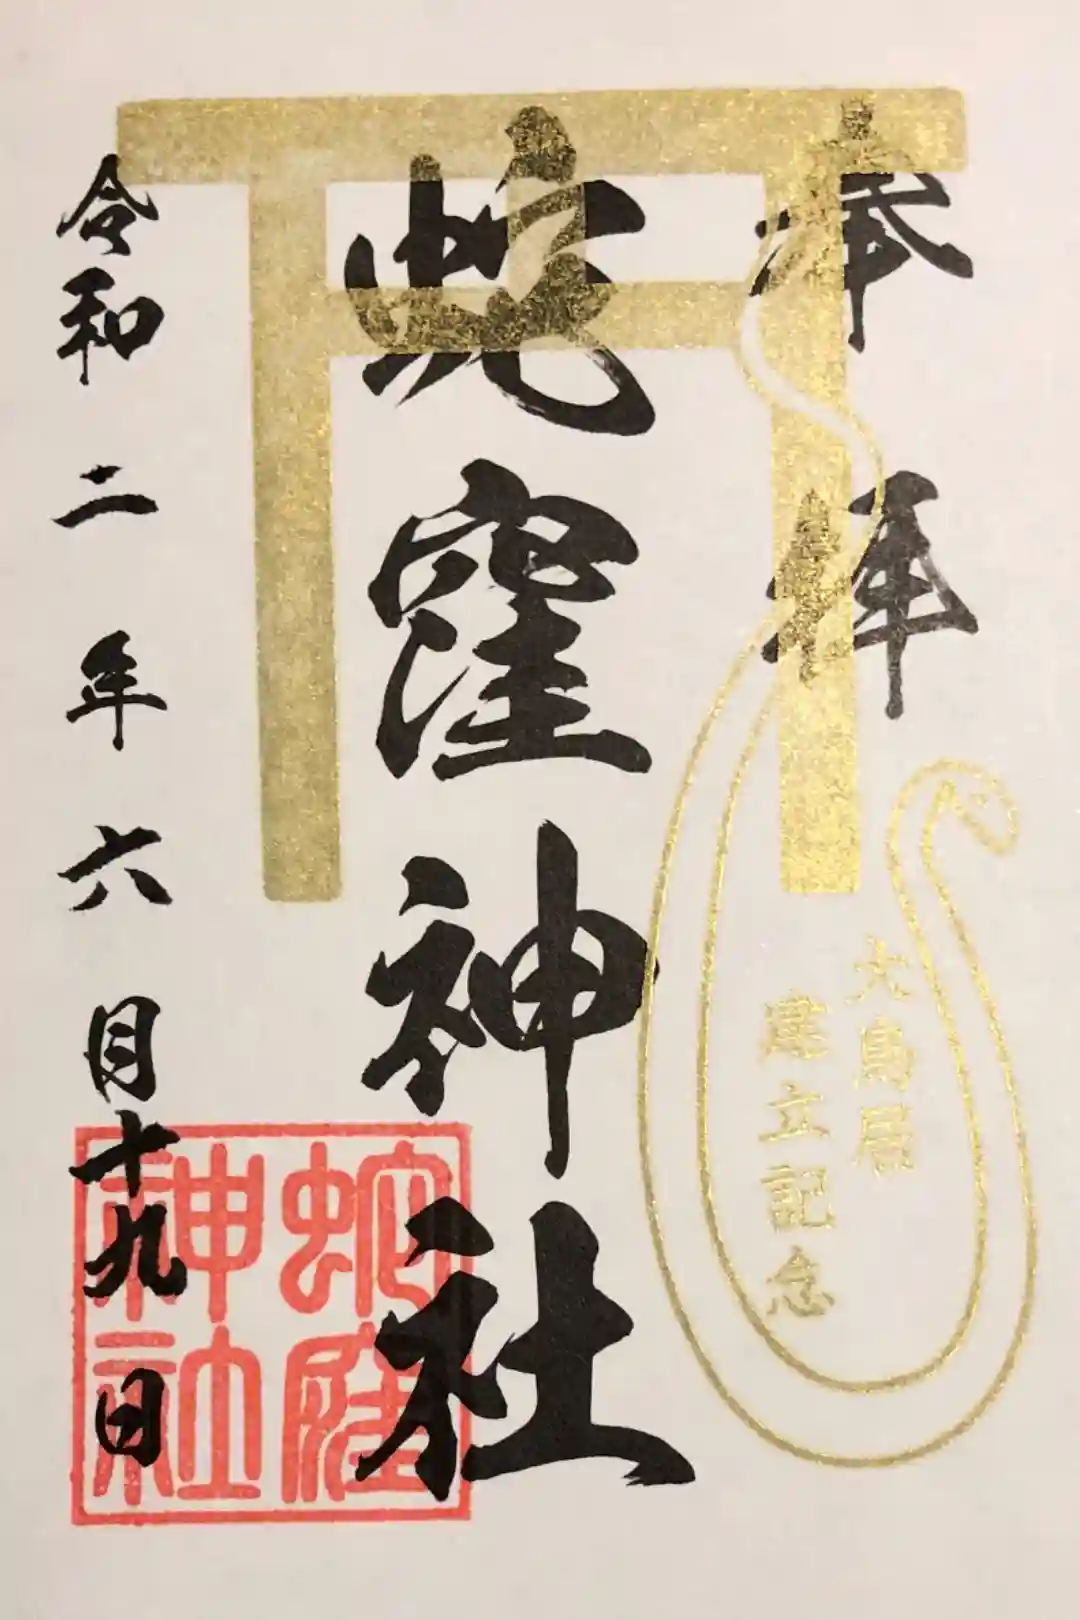 奉拝
大鳥居
建立記念
蛇窪神社
令和二年六月十九日
蛇窪
神社